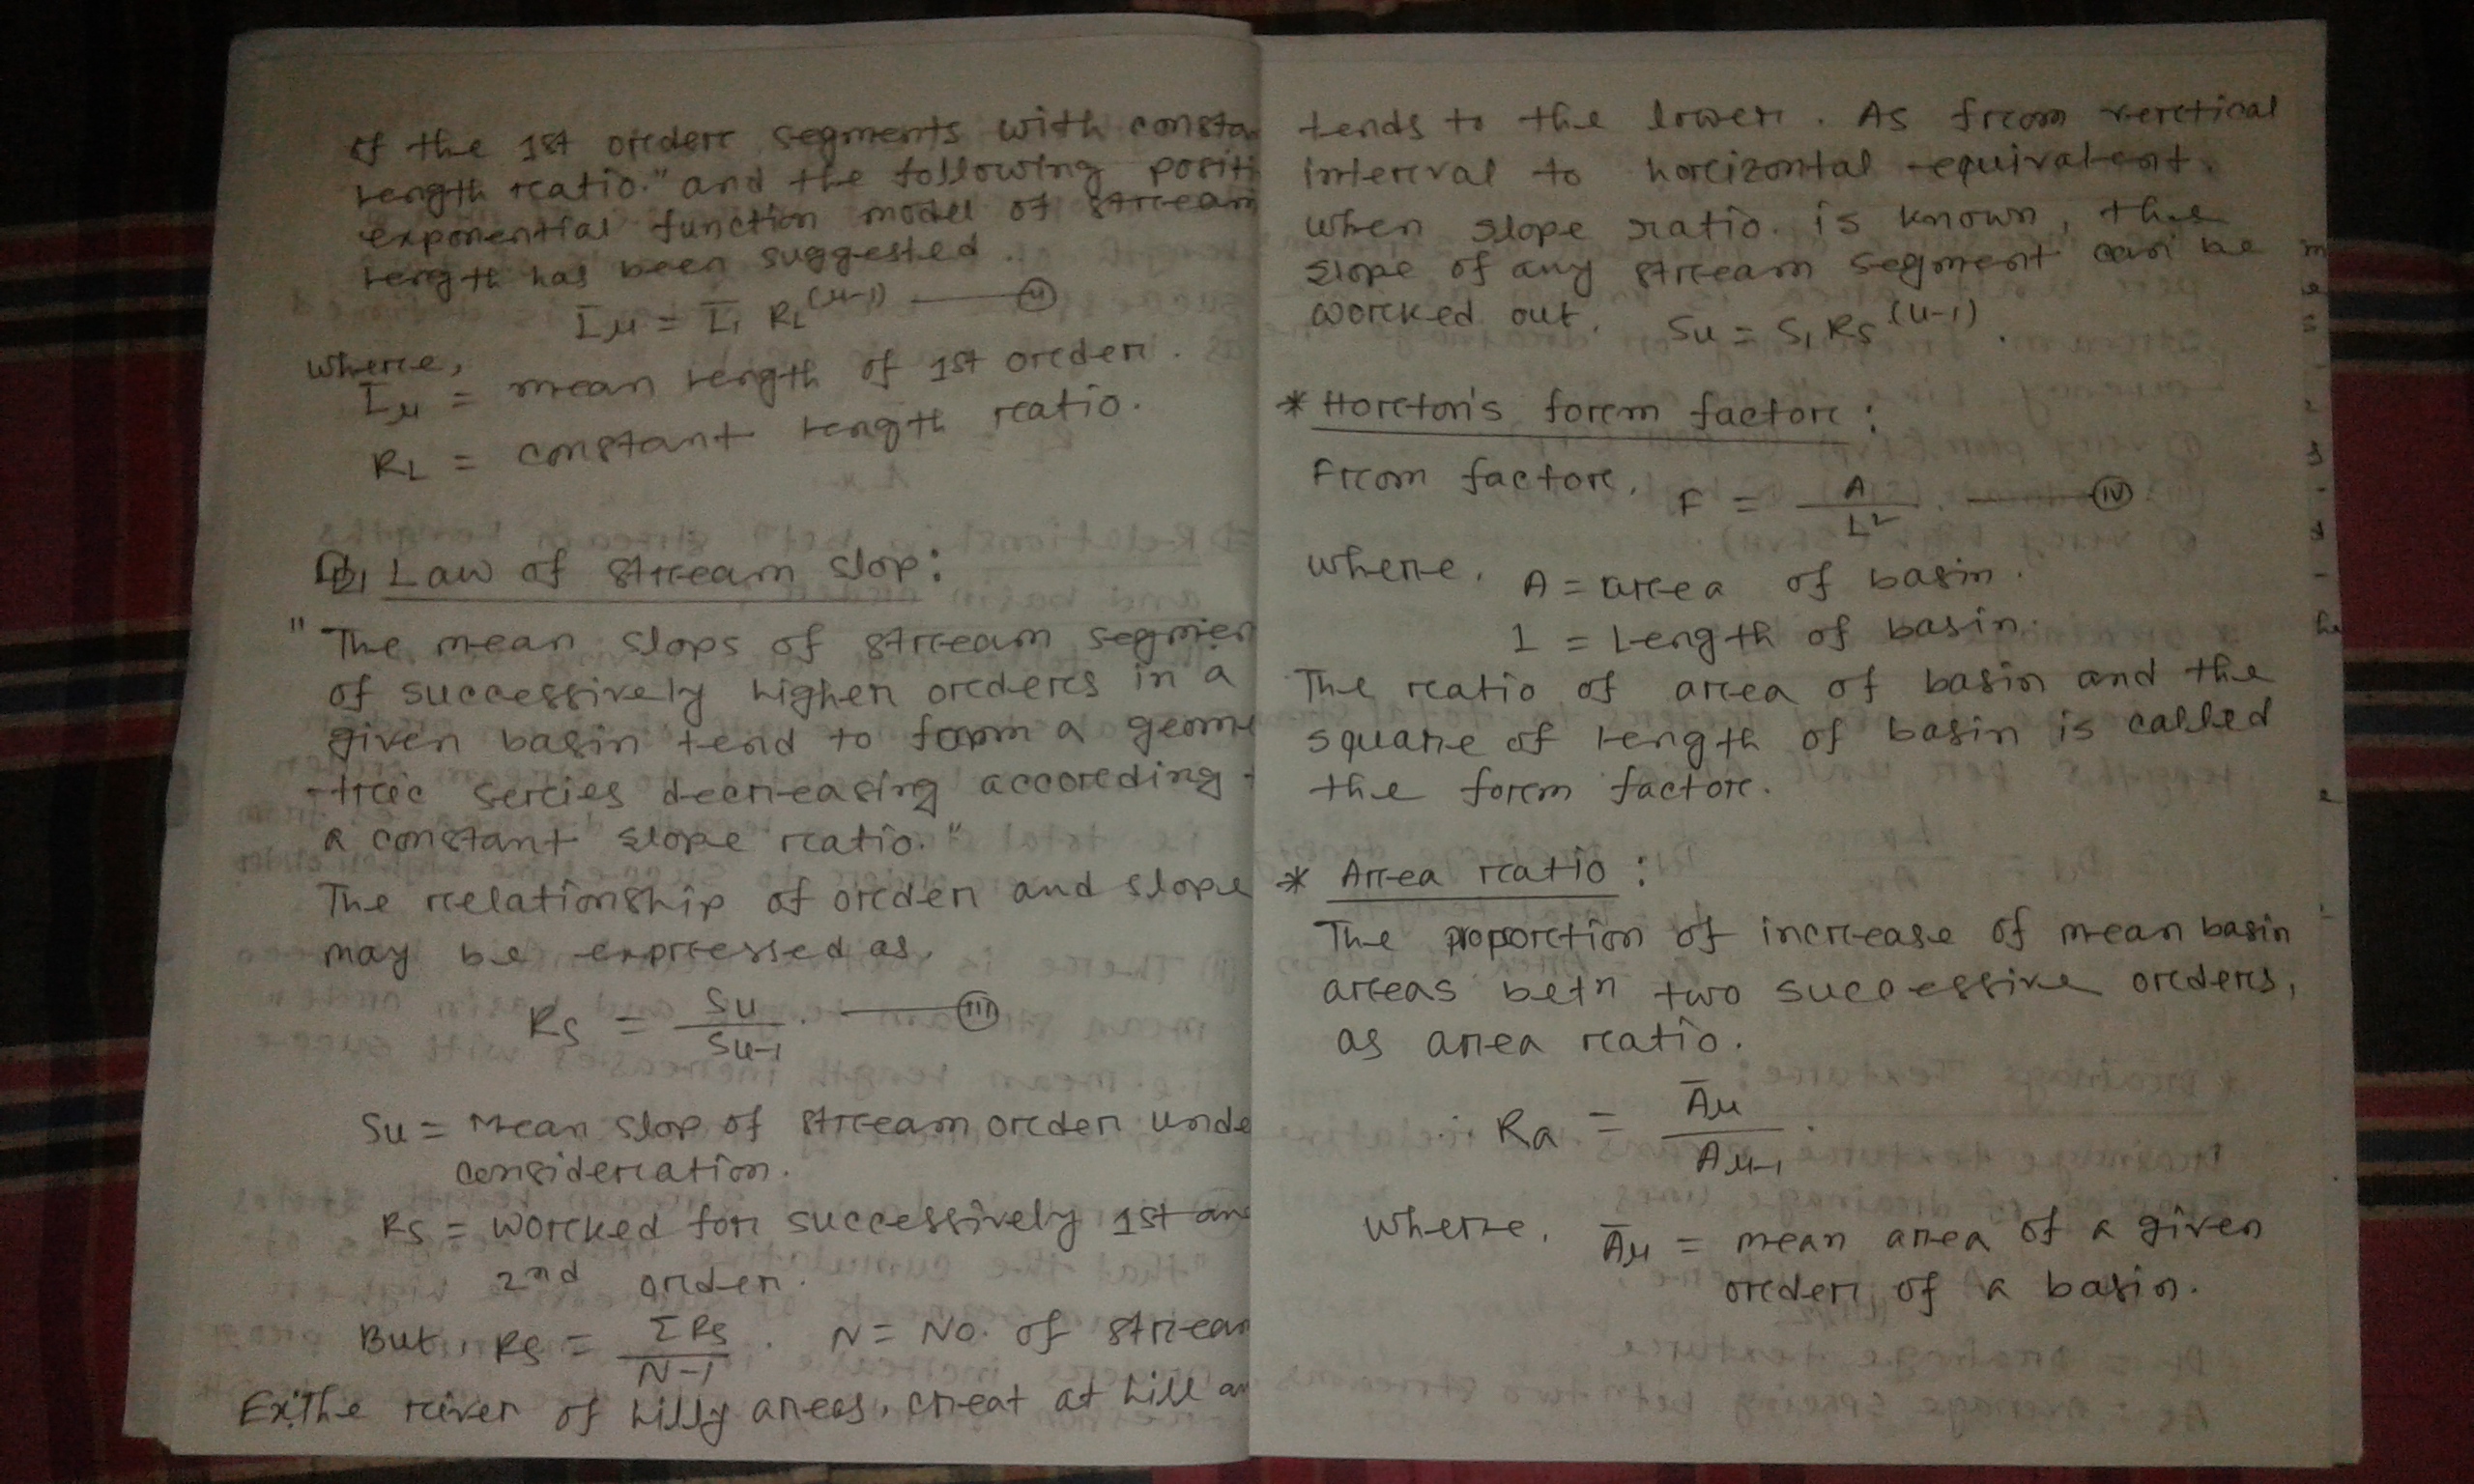 of the 1st order segments with consta
length ratio." and the following positi
exponential function model of stream
length has been suggested.
L̅μ = L̅₁ RL^(μ-1) —— (ii)
where,
L̅μ = mean length of 1st order.
RL = constant length ratio.
Law of stream slop:
"The mean slops of stream segmen
of successively higher orders in a
given basin tend to form a geome
-tric series decreasing according t
a constant slope ratio."
The relationship of order and slope
may be expressed as,
Rs = Su / Su-1 . —— (iii)
Su = Mean slop of stream order unde
consideration.
Rs = worked for successively 1st an
2nd order.
But, Rs = ΣRs / N-1 . N = No. of stream
Ex: The river of hilly areas, creat at hill an
tends to the lower. As from vertical
interval to horizontal equivalent.
when slope ratio. is known, the
slope of any stream segment can be
worked out. Su = S₁ Rs^(u-1) .
* Horton's form factor:
From factor, F = A / L² . —— (iv)
where, A = area of basin.
1 = Length of basin.
The ratio of area of basin and the
square of length of basin is called
the form factor.
* Area ratio:
The proportion of increase of mean basin
areas betn two successive orders,
as area ratio.
Ra = A̅μ / Aμ-1 .
where, A̅μ = mean area of a given
order of a basin.